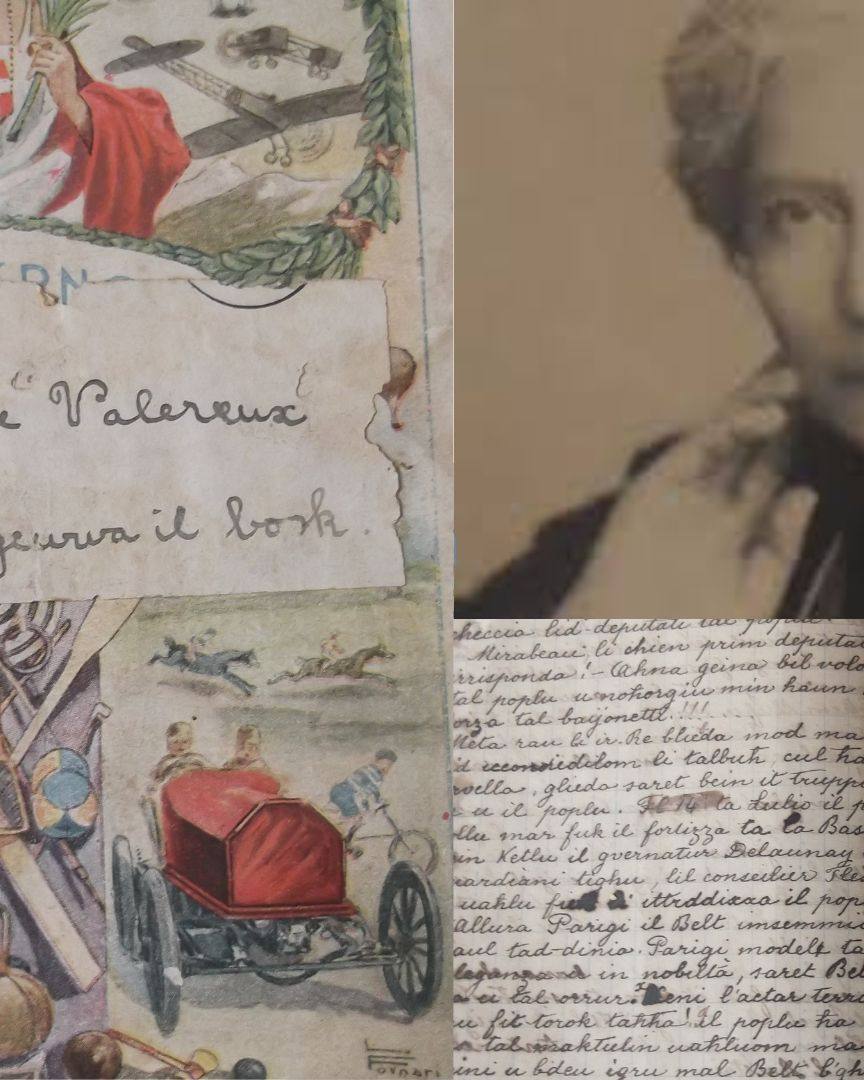 ERN
e Valereux
geurva il bosk.
checcia lid-deputati tal
Mirabeau li chien prim deputat
rrisponda! - Ahna geina bil volo
tal poplu u nohorgiu min haun
orza tal baijonetti!!!
Meta rau li ir-Re blieda mod ma
d li talbuh, cul ha
vella, glieda saret bein it trupp
u il poplu. Fl 14 ta Lulio il p
llu mar fuk il fortizza ta la Bas
in Ketlu il gvernatur Delaunay,
vardiani tighu, lil conseilier Fles
uahlu il pop
allura Parigi il Belt imsemmi
aul tad-dinia. Parigi modell ta
leganza u in nobiltà, saret Bel
a u tal orrur. l'actar terri
u fit-torok tahha! il poplu ha
tal maktulin uahluom ma
ini u bdeu igru mal Belt b'gh